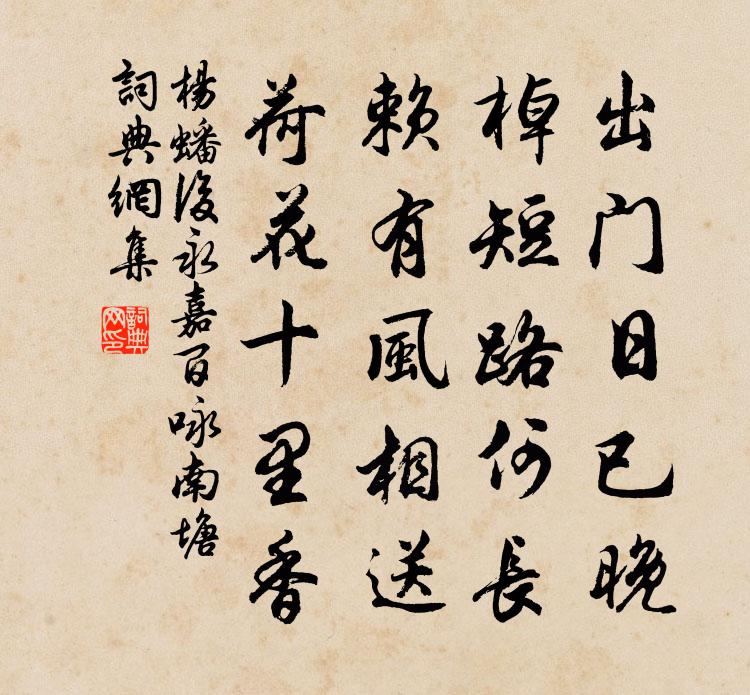 出門日已晚
棹短路何長
賴有風相送
荷花十里香
楊蟠後永嘉百咏南塘
詞典網集
詞典
网印